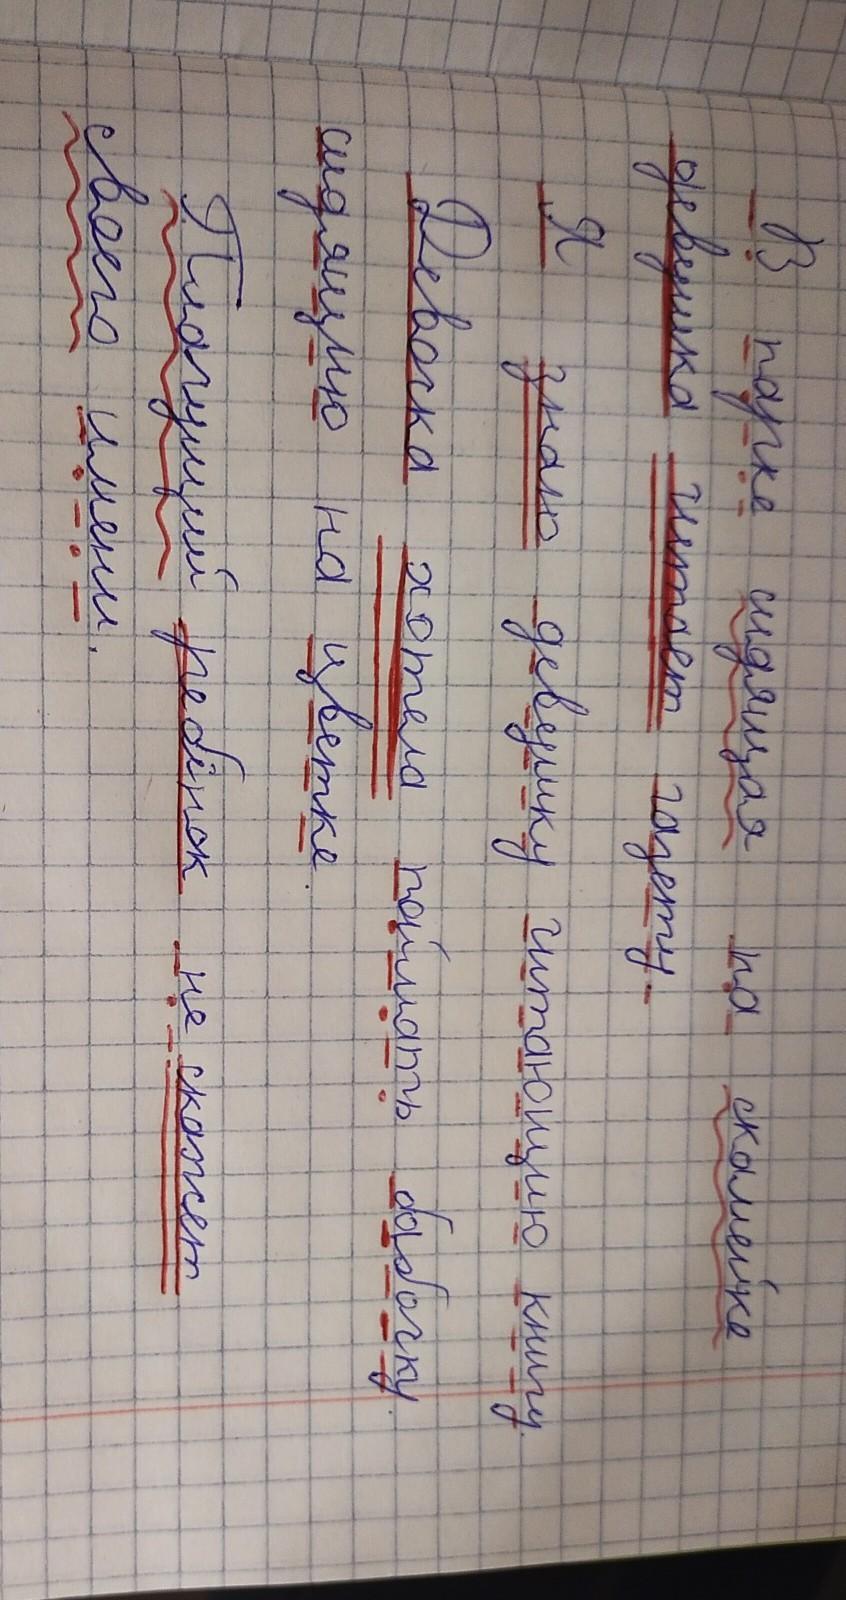 В парке сидящая на скамейке
девушка читает газету.
Я знаю девушку читающую книгу.
Девочка хотела поймать бабочку
сидящую на цветке.
Плачущий ребёнок не скажет
своего имени.